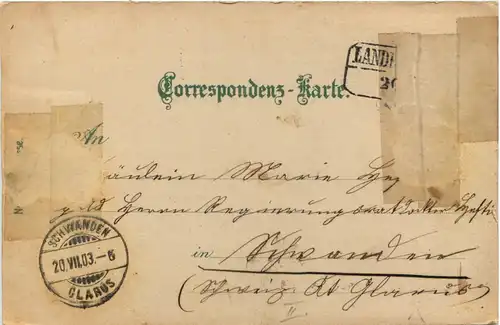 LAND
20
Correspondenz-Karte.
An
Fräulein Marie
Herrn Regierungsrat
in Schwanden
(Schweiz Ct Glarus)
SCHWANDEN
20.VII.03.-6
GLARUS